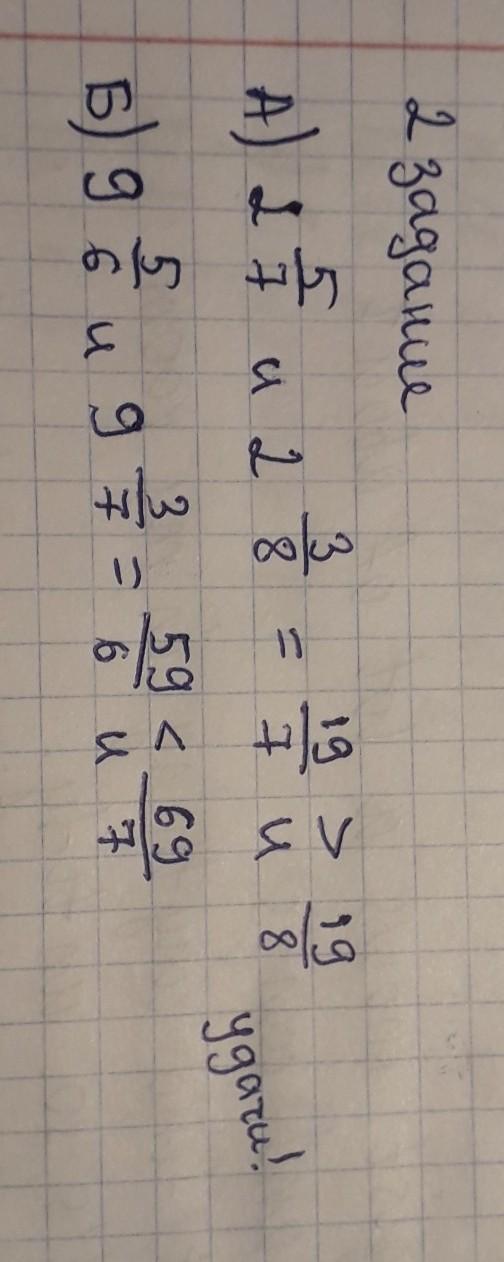 2 задание
А) 2 5/7 и 2 3/8 = 19/7 > и 19/8
Б) 9 5/6 и 9 3/7 = 59/6 < и 69/7
удачи!